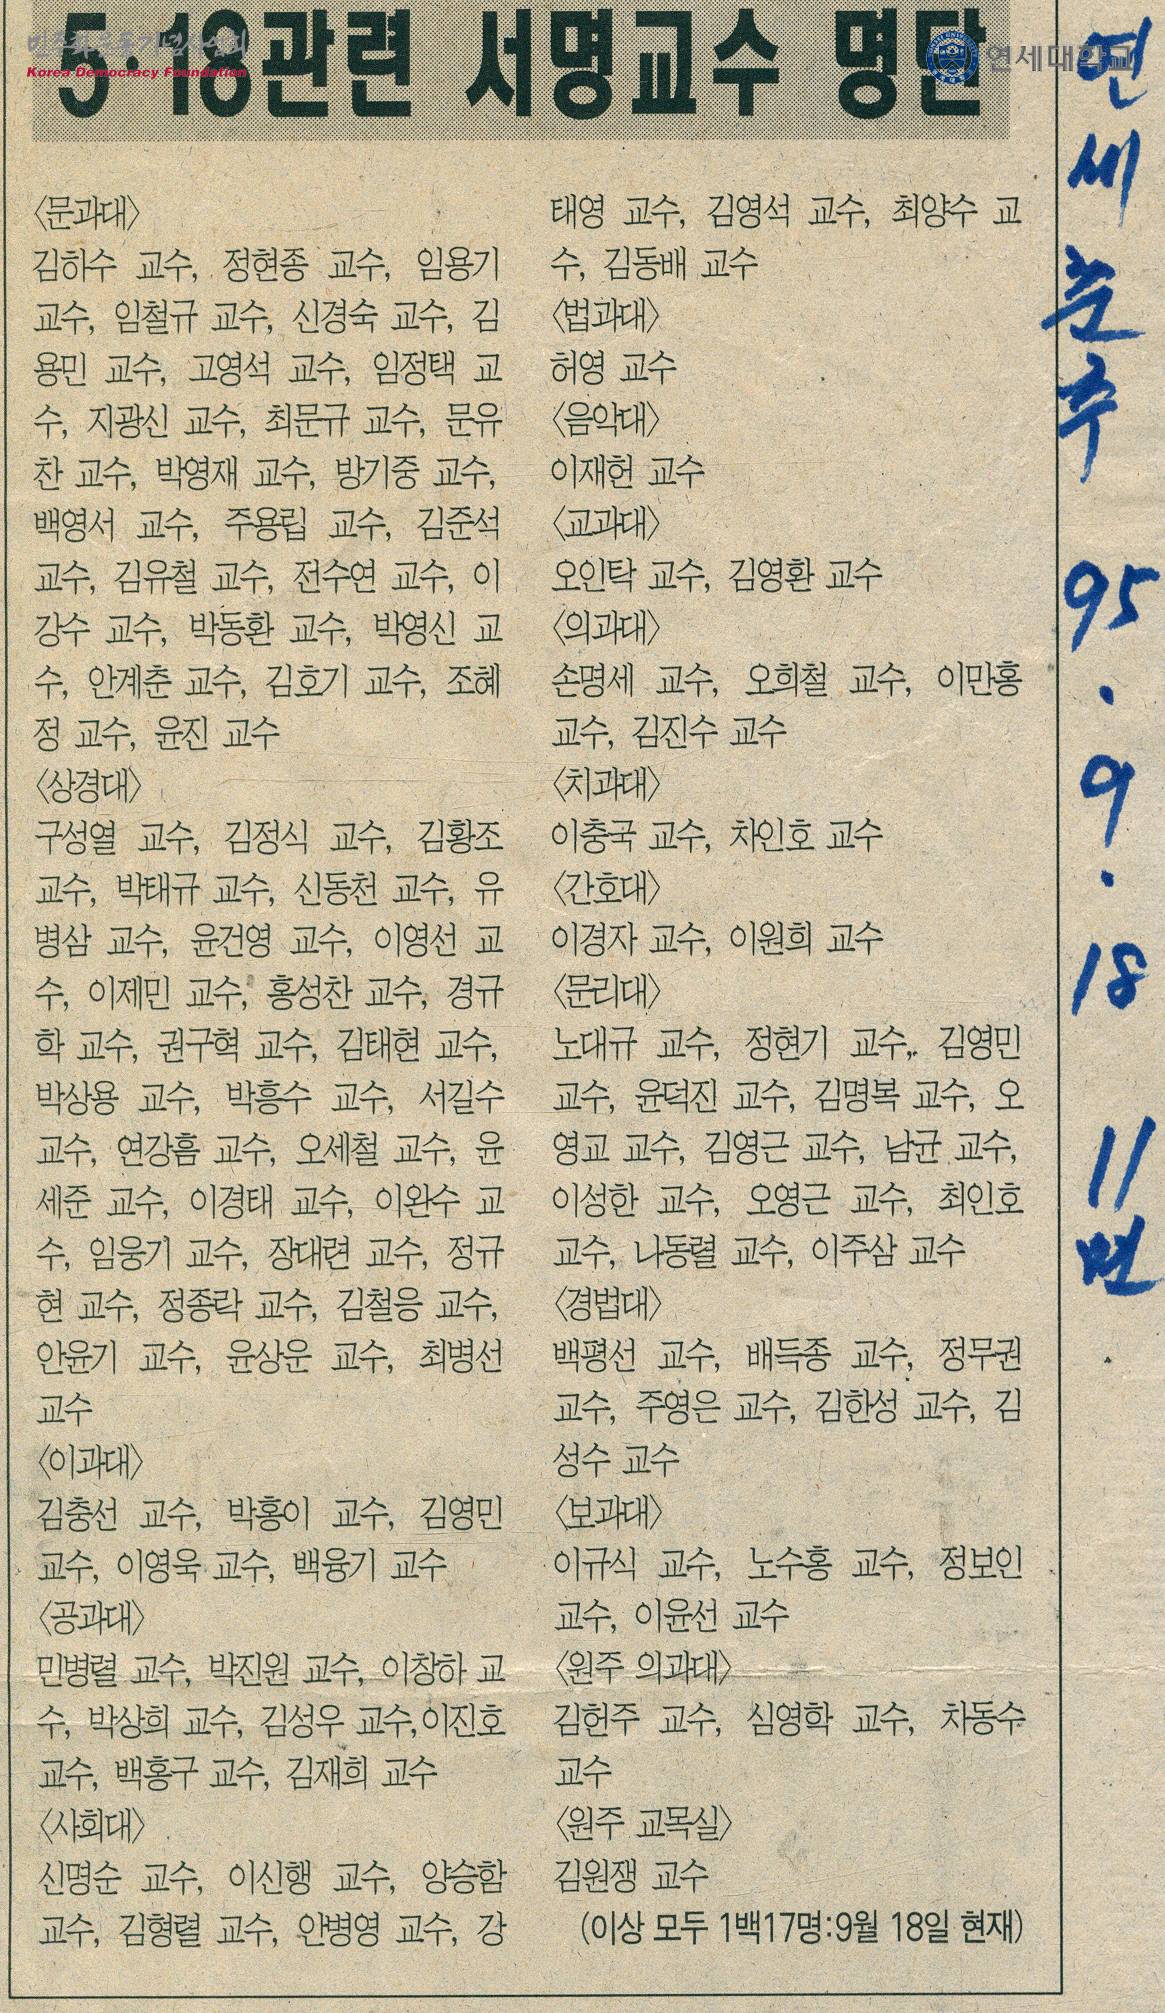 5·18관련 서명교수 명단
민주화운동기념사업회
Korea Democracy Foundation
연세대학교
〈문과대〉
김하수 교수, 정현종 교수, 임용기
교수, 임철규 교수, 신경숙 교수, 김
용민 교수, 고영석 교수, 임정택 교
수, 지광신 교수, 최문규 교수, 문유
찬 교수, 박영재 교수, 방기중 교수,
백영서 교수, 주용립 교수, 김준석
교수, 김유철 교수, 전수연 교수, 이
강수 교수, 박동환 교수, 박영신 교
수, 안계춘 교수, 김호기 교수, 조혜
정 교수, 윤진 교수
〈상경대〉
구성열 교수, 김정식 교수, 김황조
교수, 박태규 교수, 신동천 교수, 유
병삼 교수, 윤건영 교수, 이영선 교
수, 이제민 교수, 홍성찬 교수, 경규
학 교수, 권구혁 교수, 김태현 교수,
박상용 교수, 박흥수 교수, 서길수
교수, 연강흠 교수, 오세철 교수, 윤
세준 교수, 이경태 교수, 이완수 교
수, 임웅기 교수, 장대련 교수, 정규
현 교수, 정종락 교수, 김철응 교수,
안윤기 교수, 윤상운 교수, 최병선
교수
〈이과대〉
김충선 교수, 박홍이 교수, 김영민
교수, 이영욱 교수, 백융기 교수
〈공과대〉
민병렬 교수, 박진원 교수, 이창하 교
수, 박상희 교수, 김성우 교수,이진호
교수, 백홍구 교수, 김재희 교수
〈사회대〉
신명순 교수, 이신행 교수, 양승함
교수, 김형렬 교수, 안병영 교수, 강
태영 교수, 김영석 교수, 최양수 교
수, 김동배 교수
〈법과대〉
허영 교수
〈음악대〉
이재헌 교수
〈교과대〉
오인탁 교수, 김영환 교수
〈의과대〉
손명세 교수, 오희철 교수, 이만홍
교수, 김진수 교수
〈치과대〉
이충국 교수, 차인호 교수
〈간호대〉
이경자 교수, 이원희 교수
〈문리대〉
노대규 교수, 정현기 교수, 김영민
교수, 윤덕진 교수, 김명복 교수, 오
영교 교수, 김영근 교수, 남균 교수,
이성한 교수, 오영근 교수, 최인호
교수, 나동렬 교수, 이주삼 교수
〈경법대〉
백평선 교수, 배득종 교수, 정무권
교수, 주영은 교수, 김한성 교수, 김
성수 교수
〈보과대〉
이규식 교수, 노수홍 교수, 정보인
교수, 이윤선 교수
〈원주 의과대〉
김헌주 교수, 심영학 교수, 차동수
교수
〈원주 교목실〉
김원쟁 교수
(이상 모두 1백17명:9월 18일 현재)
연세춘추 95.9.18 11면